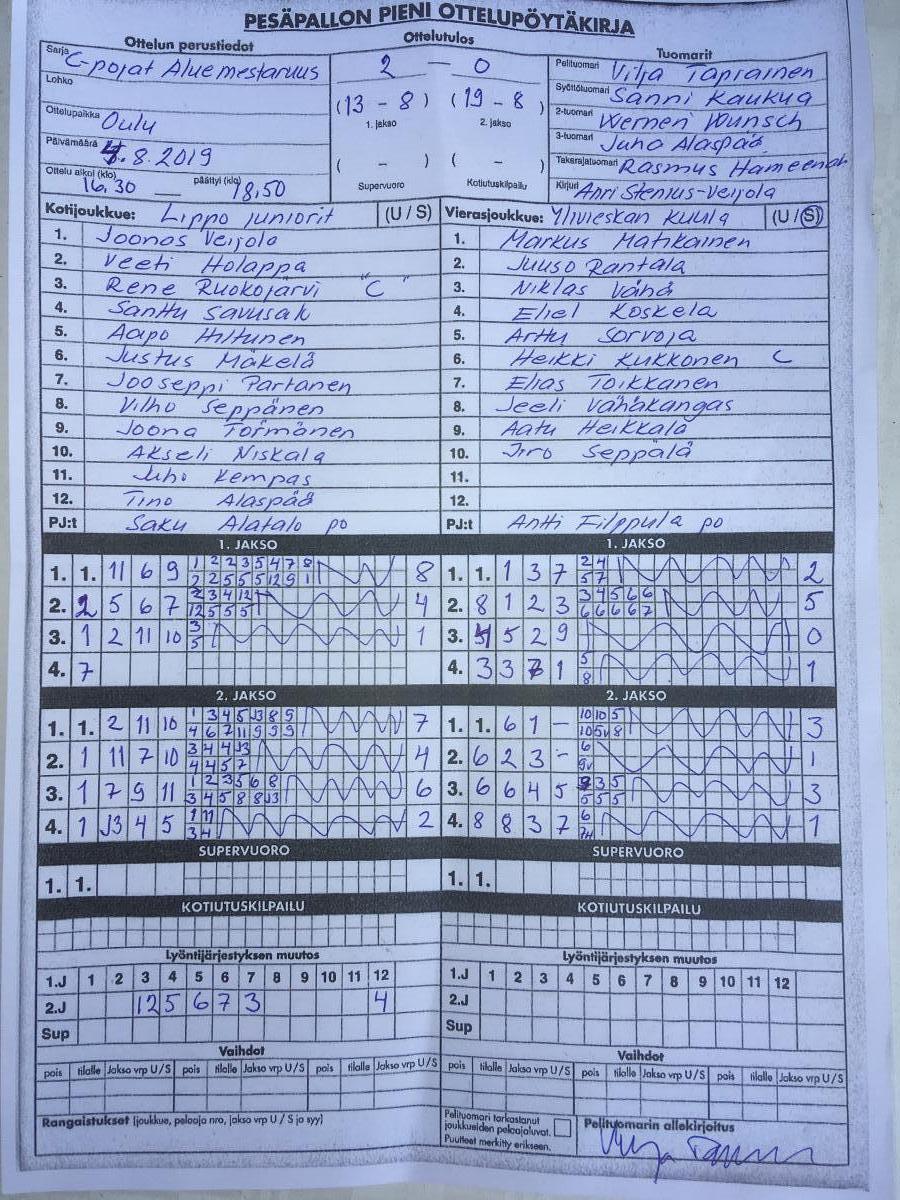 PESÄPALLON PIENI OTTELUPÖYTÄKIRJA
Ottelun perustiedot
Sarja C-pojat Aluemestaruus
Lohko
Ottelupaikka Oulu
Päivämäärä 4.8.2019
Ottelu alkoi (klo) 16.30 päättyi (klo) 18,50
Ottelutulos
2 — 0
(13 - 8) (19 - 8)
1. jakso 2. jakso
( - ) ( - )
Supervuoro Kotiutuskilpailu
Tuomarit
Pelituomari Vilja Tapiainen
Syöttötuomari Sanni Kaukua
2-tuomari Werneri Wunsch
3-tuomari Juha Alaspää
Takarajatuomari Rasmus Hameenah
Kirjuri Anri Stenius-Veijola
Kotijoukkue: Lippo juniorit (U / S)
1. Joonas Veijola
2. Veeti Holappa
3. Rene Ruokojärvi "C"
4. Santtu Savusalo
5. Aapo Hiltunen
6. Justus Mäkelä
7. Jooseppi Partanen
8. Vilho Seppänen
9. Joona Törmänen
10. Akseli Niskala
11. Juho Kempas
12. Tino Alaspää
PJ:t Saku Alatalo po
Vierasjoukkue: Ylivieskan Kuula (U / S)
1. Markus Matikainen
2. Juuso Rantala
3. Niklas Vähä
4. Eliel Koskela
5. Arttu Sorvoja
6. Heikki Kukkonen C
7. Elias Toikkanen
8. Jeeli Vähäkangas
9. Aatu Heikkala
10. Jiro Seppälä
11.
12.
PJ:t Antti Filppula po
1. JAKSO
1. 1. 11 6 9 1 2 2 3 5 4 7 8 8
2 2 5 5 5 12 9 1
2. 2 5 6 7 2 3 4 12 4
12 5 5 5
3. 1 2 11 10 3 1
5
4. 7
1. JAKSO
1. 1. 1 3 7 2 4 2
5 7
2. 8 1 2 3 3 4 5 6 6 5
6 6 6 6 7
3. 4 5 2 9 0
4. 3 3 7 1 5 1
8
2. JAKSO
1. 1. 2 11 10 1 3 4 5 J3 8 9 7
4 6 7 11 9 9 9
2. 1 11 7 10 3 4 4 J3 4
4 4 5 7
3. 1 7 9 11 1 2 3 5 6 8 6
3 4 5 8 8 J3
4. 1 J3 4 5 1 11 2
3 4
2. JAKSO
1. 1. 6 1 - 10 10 5 3
10 5v 8
2. 6 2 3 - 6 1
9v
3. 6 6 4 5 3 5 3
5 5 5
4. 8 8 3 7 6 1
SUPERVUORO
1. 1.
SUPERVUORO
1. 1.
KOTIUTUSKILPAILU
KOTIUTUSKILPAILU
Lyöntijärjestyksen muutos
1.J 1 2 3 4 5 6 7 8 9 10 11 12
2.J 12 5 6 7 3 4
Sup
Lyöntijärjestyksen muutos
1.J 1 2 3 4 5 6 7 8 9 10 11 12
2.J
Sup
Vaihdot
pois tilalle Jakso vrp U/S pois tilalle Jakso vrp U/S pois tilalle Jakso vrp U/S
Vaihdot
pois tilalle Jakso vrp U/S pois tilalle Jakso vrp U/S pois tilalle Jakso vrp U/S
Rangaistukset (joukkue, pelaaja nro, jakso vrp U / S ja syy)
Pelituomari tarkastanut
joukkueiden pelaajaluvat.
Puutteet merkitty erikseen.
Pelituomarin allekirjoitus